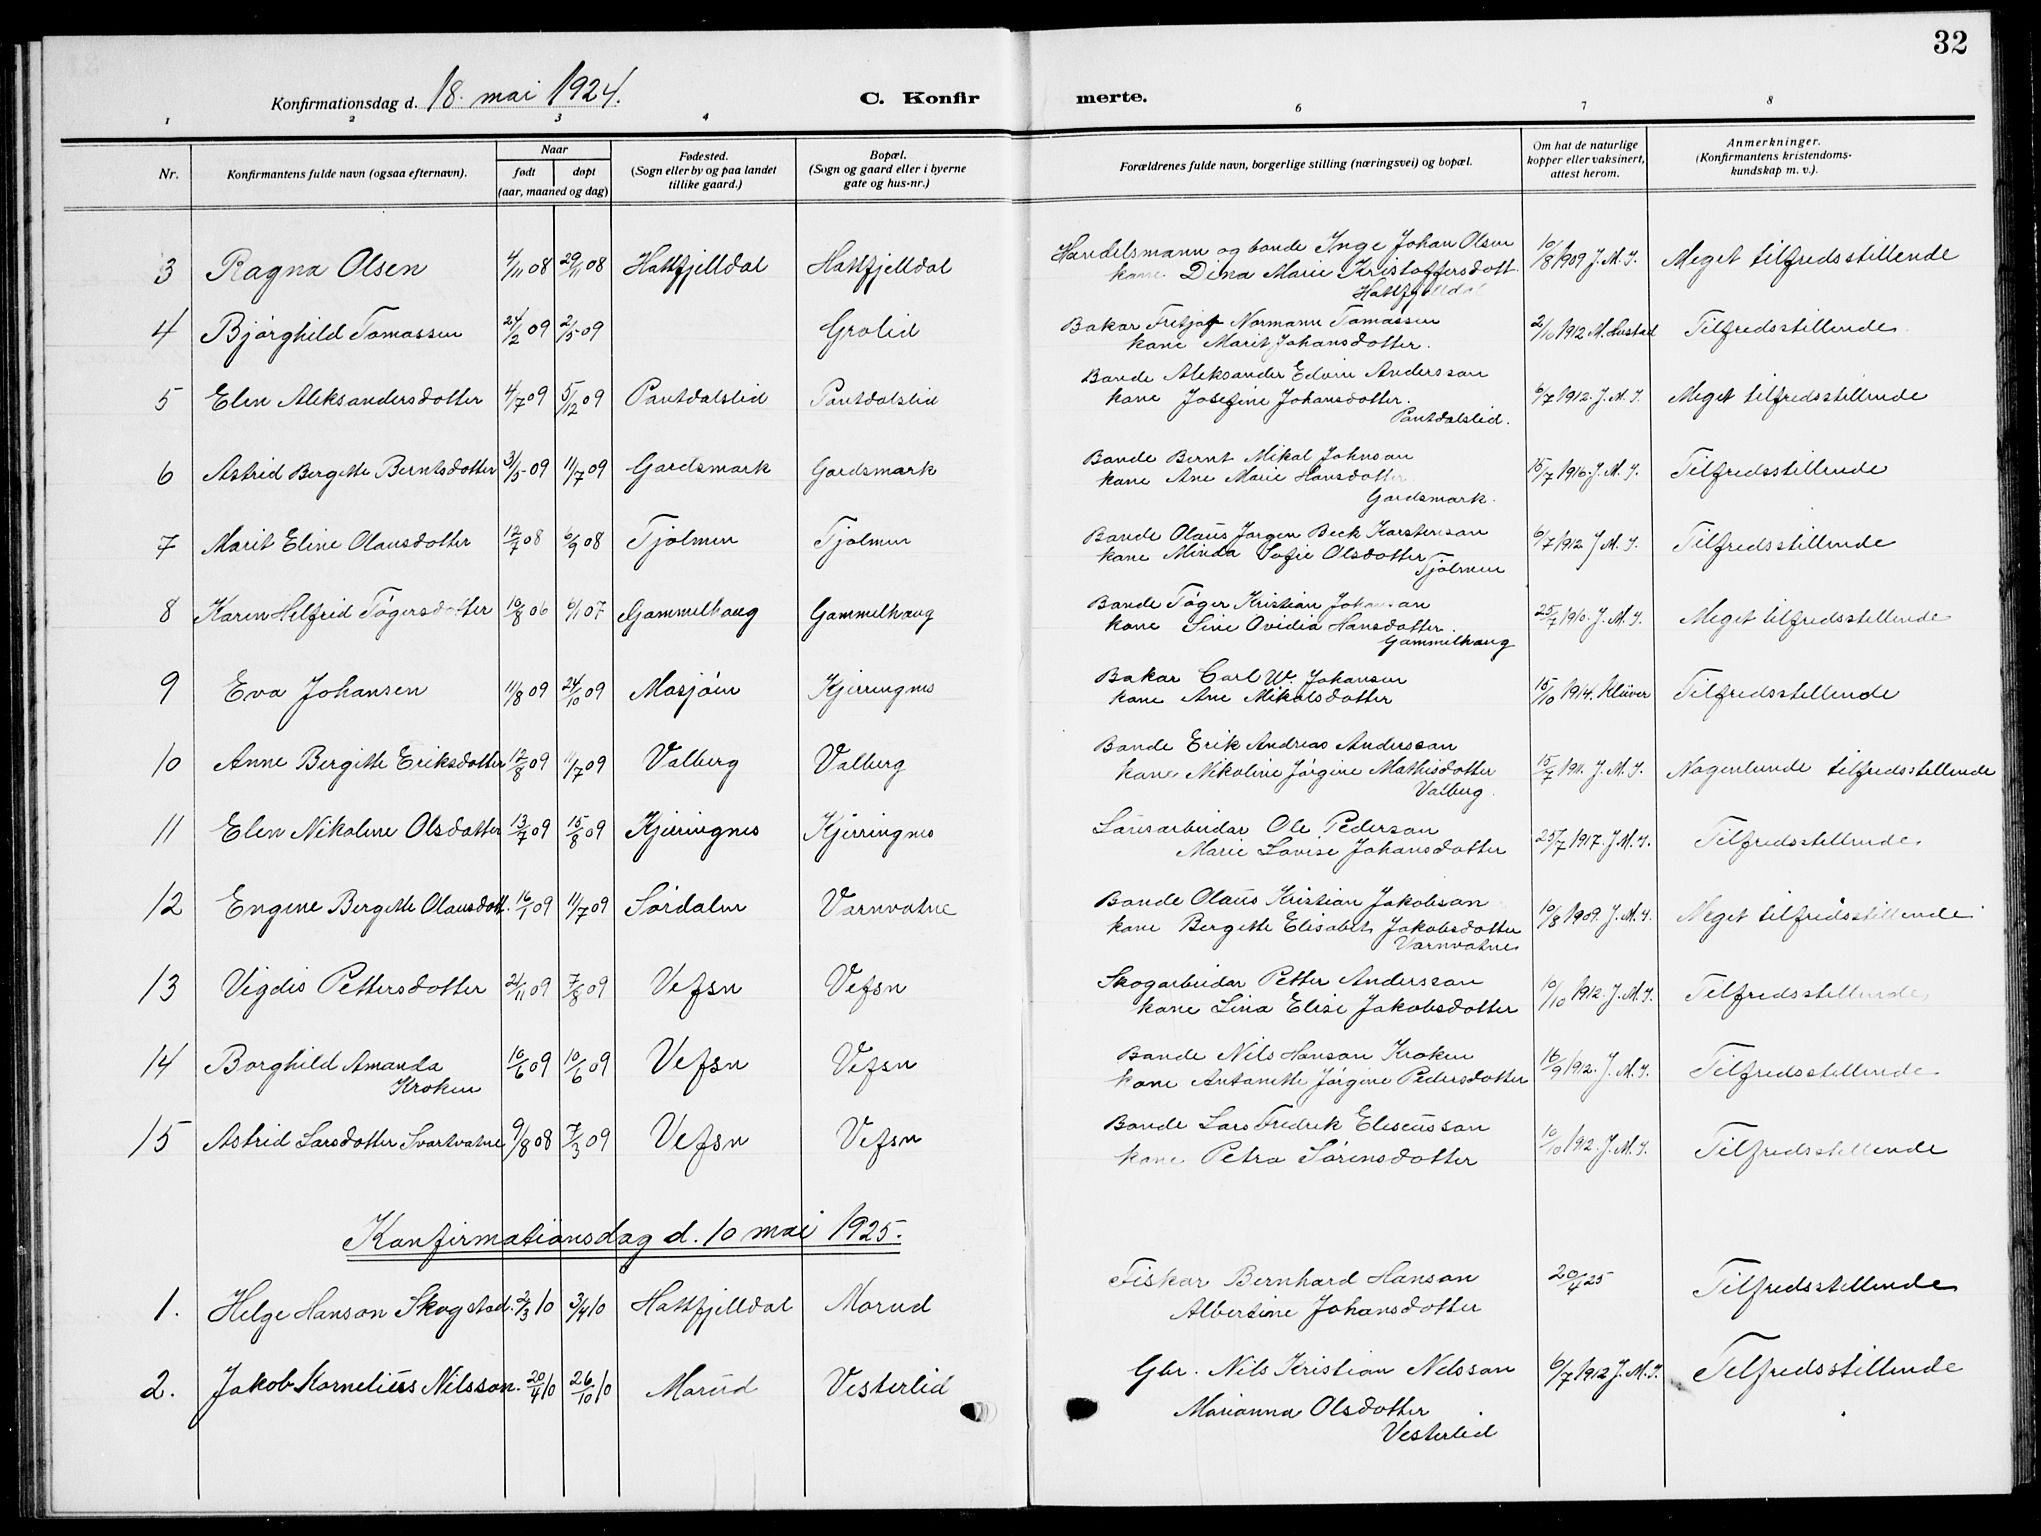 32
Konfirmationsdag d. 18. mai 1924.
C. Konfirmerte.
1 2 3 4 6 7 8
Nr.
Konfirmantens fulde navn (ogsaa efternavn).
Naar
født døpt
(aar, maaned og dag)
Fødested.
(Sogn eller by og paa landet
tillike gaard.)
Bopæl.
(Sogn og gaard eller i byerne
gate og hus-nr.)
Forældrenes fulde navn, borgerlige stilling (næringsvei) og bopæl.
Om hat de naturlige
kopper eller vaksinert,
attest herom.
Anmerkninger.
(Konfirmantens kristendoms-
kundskap m. v.).
3 Ragna Olsen 4/11 08 29/11 08 Hattfjelldal Hattfjelldal Handelsmann og bonde Inge Johan Olsen 10/8 1909 J. M. I. Meget tilfredsstillende
kone Dina Marie Kristoffersdott.
Hattfjelldal
4 Bjørghild Tomassen 24/2 09 2/5 09 Grolid Bakar Fritjof Normann Tomassen 2/10 1912 M. Lustad Tilfredsstillende
kone Marit Johansdotter.
5 Elen Aleksandersdotter 4/7 09 5/12 09 Pantdalslid Pantdalslid Bonde Aleksander Edvin Anderssan 6/7 1912. J. M. I. Meget tilfredsstillende
kone Josefine Johansdotter.
Pantdalslid.
6 Astrid Bergette Berntsdotter 3/5 09 11/7 09 Gardsmark Gardsmark Bonde Bernt Mikal Johnson 15/7 1916. J. M. I. Tilfredsstillende
kone Ane Marie Hansdotter
Gardsmark.
7 Marit Eline Olausdotter 12/7 08 6/9 08 Tjolmen Tjolmen Bonde Olaus Jørgen Beck Karstenson 6/7 1912 J. M. I. Tilfredsstillende
kone Minda Sofie Olsdotter
Tjolmen
8 Karen Helfrid Tøgersdotter 10/8 06 6/1 07 Gammelhaug Gammelhaug Bonde Tøger Kristian Johanson 25/7 1910. J. M. I. Meget tilfredsstillende
kone Sine Ovidia Hansdotter
Gammelhaug
9 Eva Johansen 11/8 09 24/10 09 Mosjøen Kjerringnes Bakar Carl W. Johansen 15/10 1914. Klüver Tilfredsstillende
kone Ane Mikalsdotter
10 Anne Bergitte Eriksdotter 12/8 09 11/7 09 Valberg Valberg Bonde Erik Andreas Anderson 15/7 1911. J. M. I. Nogenlunde tilfredsstillende
kone Nikoline Jørgine Mathisdotter
Valberg.
11 Elen Nikoline Olsdatter 13/7 09 15/8 09 Kjerringnes Kjerringnes Lausarbeidar Ole Pederson 25/7 1917. J. M. I. Tilfredsstillende.
Marie Lovise Johansdotter
12 Engine Bergette Olausdott. 16/1 09 11/7 09 Sørdalen Varnvatne Bonde Olaus Kristian Jakobson 10/8 1909. J. M. I. Meget tilfredsstillende
kone Bergette Elisabet Jakobsdotter
Varnvatne
13 Vigdis Pettersdotter 21/11 09 7/8 09 Vefsn Vefsn Skogarbeidar Petter Anderson 10/10 1912. J. M. I. Tilfredsstillende
kone Lina Elise Jakobsdotter
14 Borghild Amanda 10/6 09 10/6 09 Vefsn Vefsn Bonde Nils Hanson Kroken 16/9 1912. J. M. I. Tilfredsstillende
Kroken kone Antonette Jørgine Pedersdotter
15 Astrid Larsdotter Svartvatne 9/8 08 7/3 09 Vefsn Vefsn Bonde Lars Fredrik Eliseusson 10/10 1912. J. M. I. Tilfredsstillende
kone Petra Sørensdotter
Konfirmationsdag d. 10 mai 1925.
1. Helge Hanson Skogstad. 2/3 10 3/4 10 Hattfjelldal Morud Fiskar Bernhard Hanson 20/4 25 Tilfredsstillende
Albertine Johansdotter
2. Jakob Kornelius Nilsson. 20/4 10 26/10 10 Morud Vesterlid Gbr. Nils Kristian Nilsson 6/7 1912 J. M. I. Tilfredsstillende
Marianna Olsdotter
Vesterlid